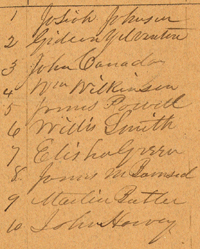 1 Josiah Johnson
2 Gideon Yelventon
3 John Canada
4 Wm Wilkinson
5 James Powell
6 Willis Smith
7 Elisha Green
8 James M
9 Martin Butler
10 John Harvey